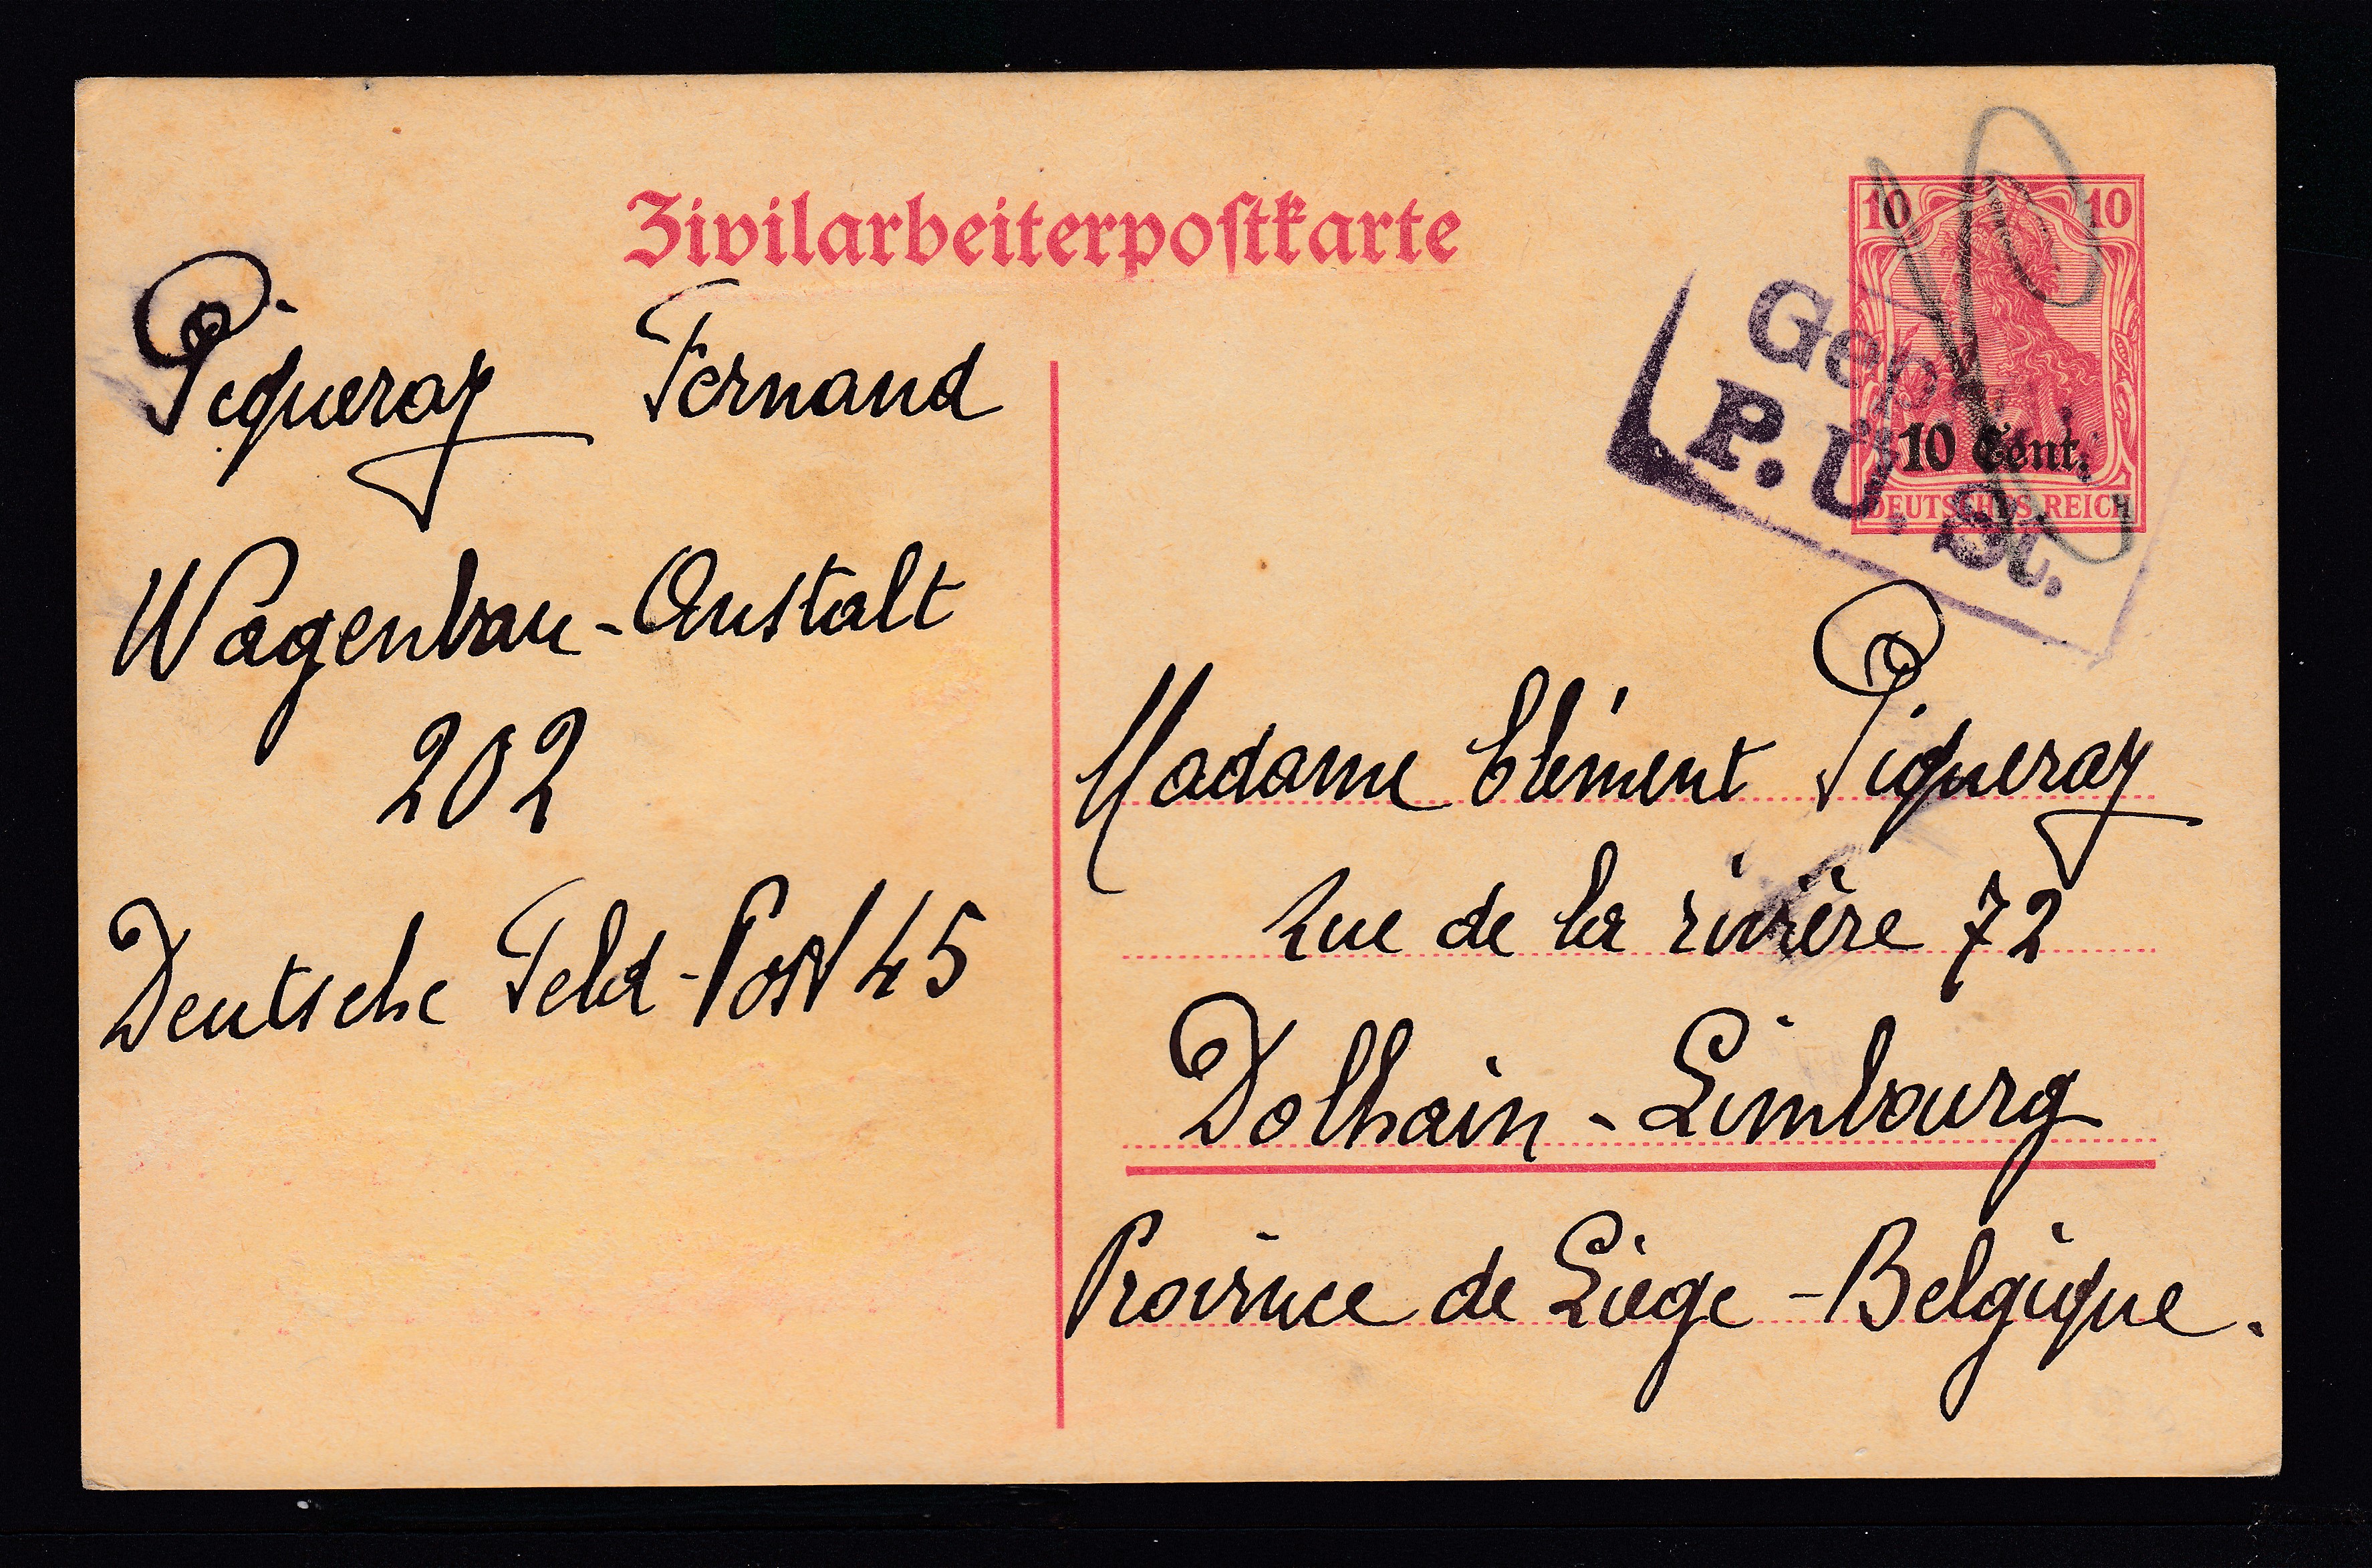 Zivilarbeiterpostkarte
10 10
10 Cent.
DEUTSCHES REICH
Gepr.
P. U. St.
Piqueray Fernand
Wagenbau-Anstalt
202
Deutsche Feld-Post 45
Madame Clément Piqueray
Rue de la rivière 72
Dolhain - Limbourg
Province de Liège - Belgique.